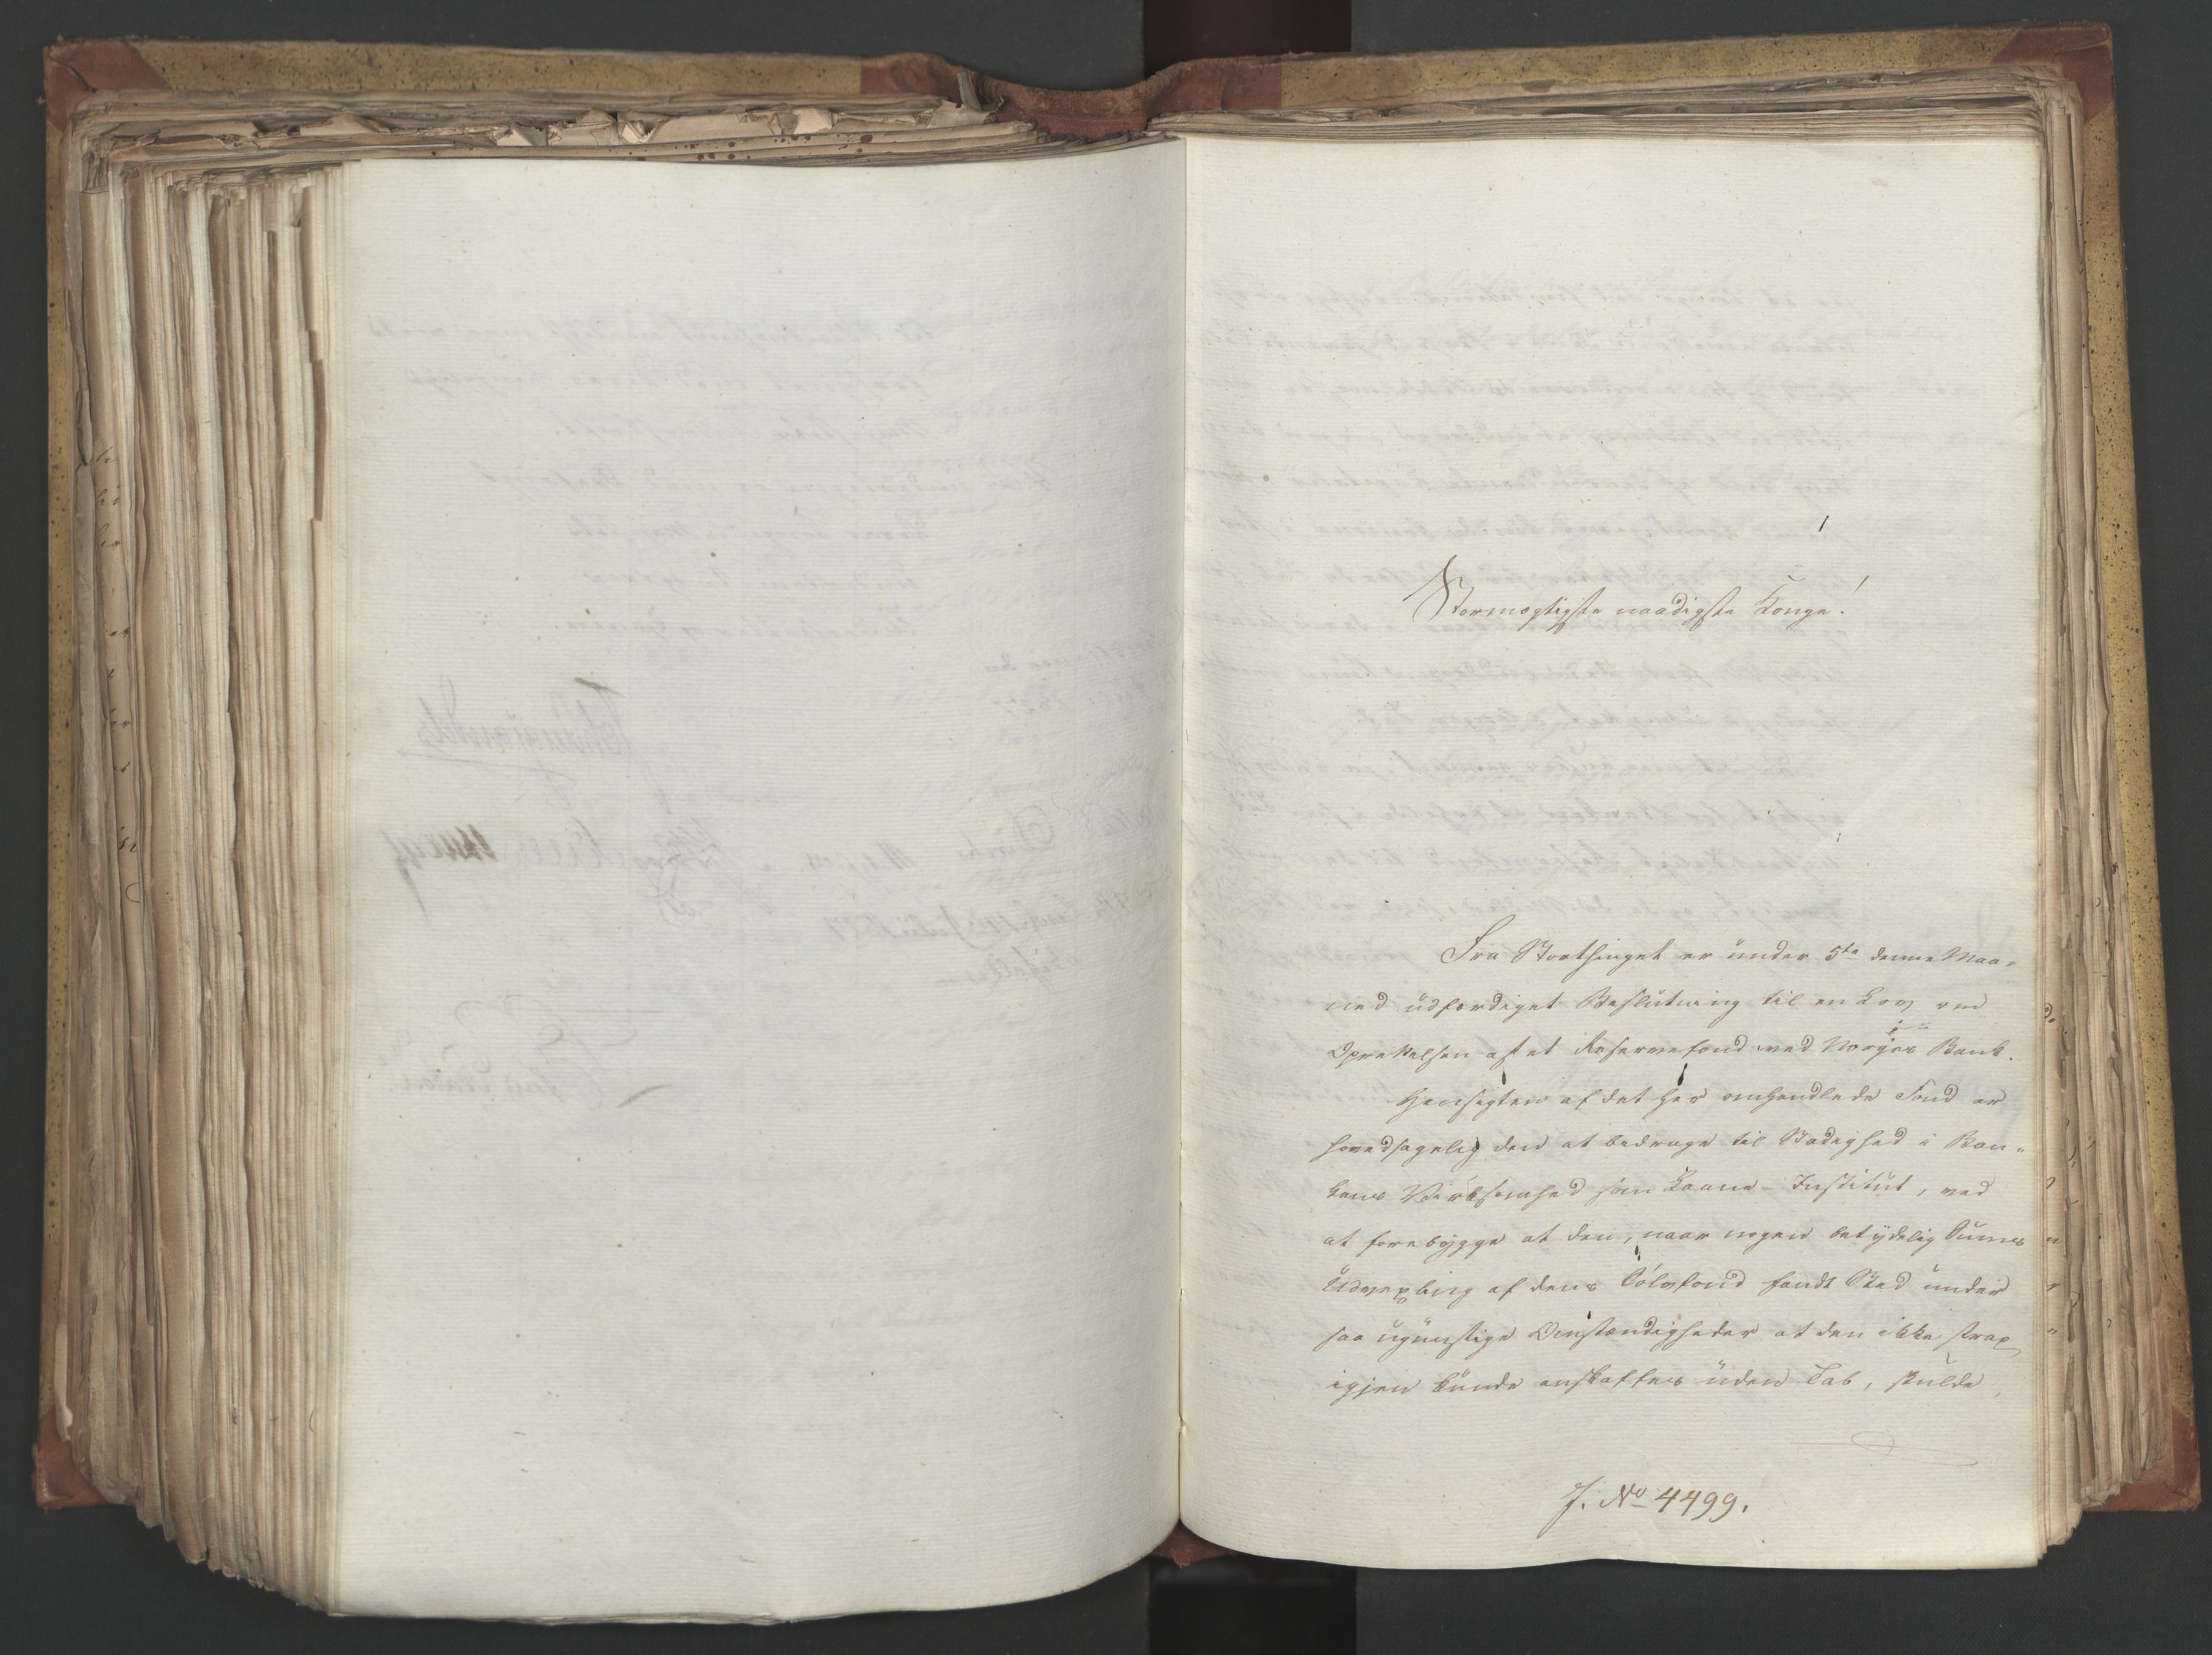 Stormægtigste naadigste Konge!
Fra Storthinget er under 5te denne Maa-
ned udfærdiget Beslutning til en Lov om
Oprettelsen af et Reservefond ved Norges Bank.
Hensigten af det her omhandlede Fond er
hovedsagelig den at bedrage til Stadighed i Ban-
kens Virksomhed som Laane-Institut, ved
at forebygge at den, naar nogen betydelig Sums
Udvexling af dens Sølvfond fandt Sted under
saa ugunstige Omstændigheder at den ikke strax
igjen kunde anskaffes uden Tab, skulde
J. No 4499.